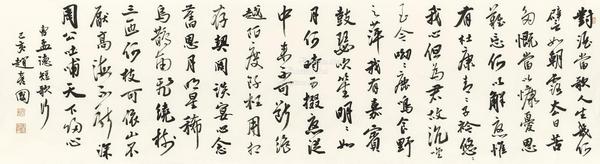 對酒當歌人生幾何
譬如朝露去日苦
多慨當以慷憂思
難忘何以解憂惟
有杜康青青子衿悠悠
我心但爲君故沉吟
至今呦呦鹿鳴食野
之苹我有嘉賓
鼓瑟吹笙明明如
月何時可掇憂從
中來不可斷絕
越陌度阡枉用相
存契闊談宴心念
舊恩月明星稀
烏鵲南飛繞樹
三匝何枝可依山不
厭高海不厭深
周公吐哺天下歸心
曹孟德短歌行
己亥趙喜國